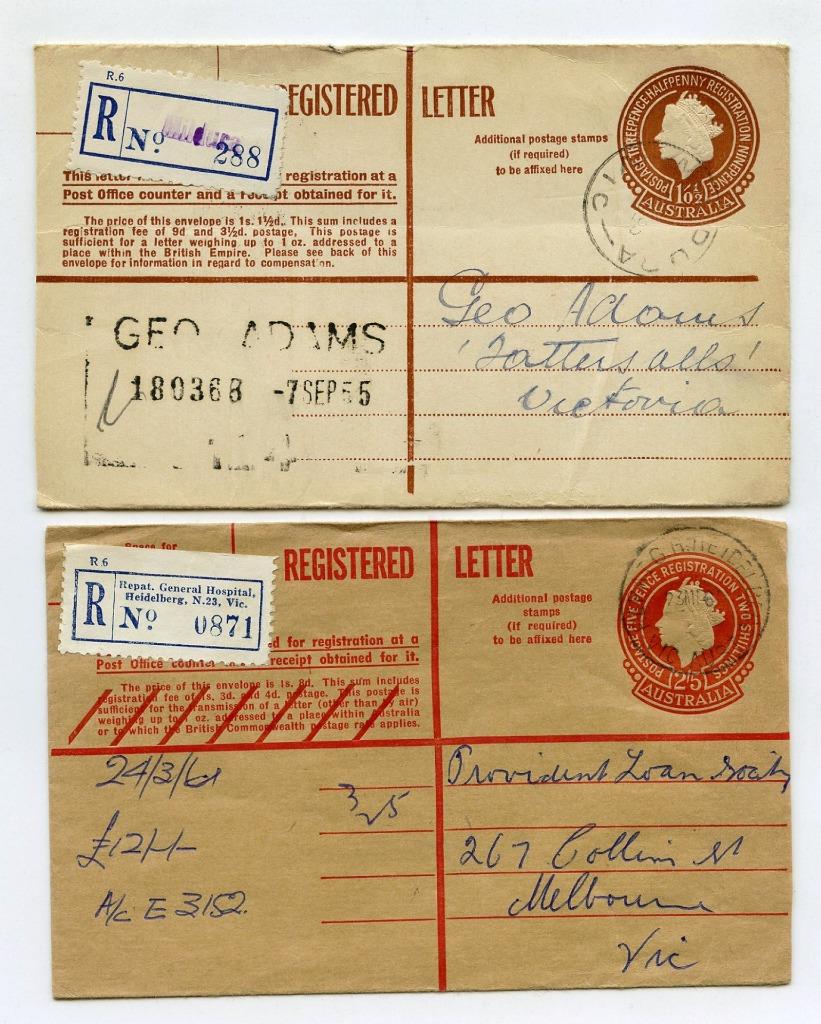 R.6
R
Nº
Mildura
288
REGISTERED LETTER
Additional postage stamps
(if required)
to be affixed here
POSTAGE THREEPENCE HALFPENNY REGISTRATION NINEPENCE
1'0½
AUSTRALIA
This letter registration at a
Post Office counter and a receipt obtained for it.
The price of this envelope is 1s. 1½d. This sum includes a
registration fee of 9d and 3½d. postage, This postage is
sufficient for a letter weighing up to 1 oz. addressed to a
place within the British Empire. Please see back of this
envelope for information in regard to compensation.
VIC
GEO ADAMS
180368 -7 SEP 55
Geo Adams
'Tattersalls'
Victoria
R.6
R
Repat. General Hospital,
Heidelberg, N.23, Vic.
Nº 0871
Space for
REGISTERED LETTER
Additional postage
stamps
(if required)
to be affixed here
POSTAGE FIVE PENCE REGISTRATION TWO SHILLINGS
2'5
AUSTRALIA
VIC. AUST
d for registration at a
Post Office counter receipt obtained for it.
The price of this envelope is 1s. 8d. This sum includes
registration fee of 1s. 3d. and 4d. postage. This postage is
sufficient for the transmission of a letter (other than by air)
weighing up to 1 oz. addressed to a place within Australia
or to which the British Commonwealth postage rate applies.
24/3/61
3/25
£12/-/-
A/c E 3152.
Provident Loan Society
267 Collins St
Melbourne
Vic